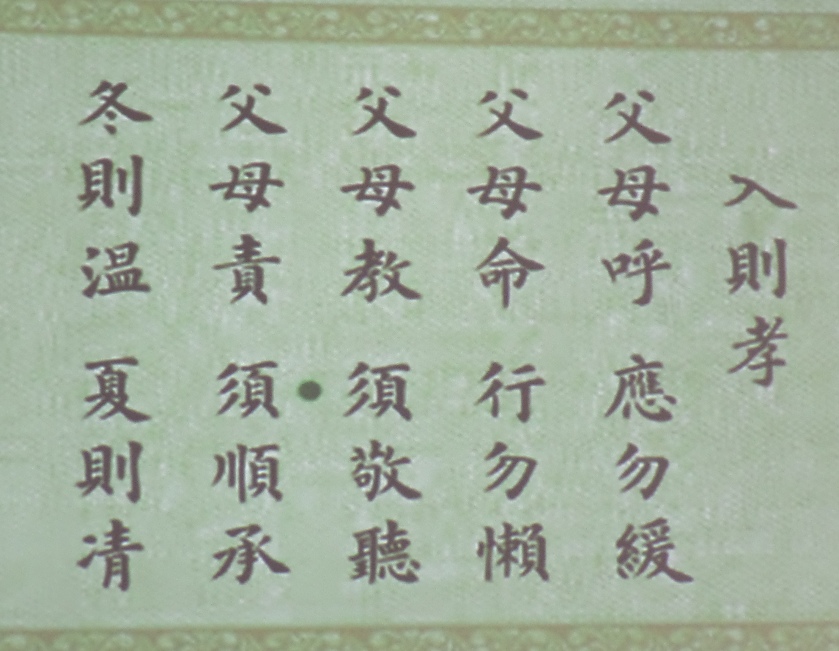 入則孝
父母呼 應勿緩
父母命 行勿懶
父母教 須敬聽
父母責 須順承
冬則溫 夏則凊